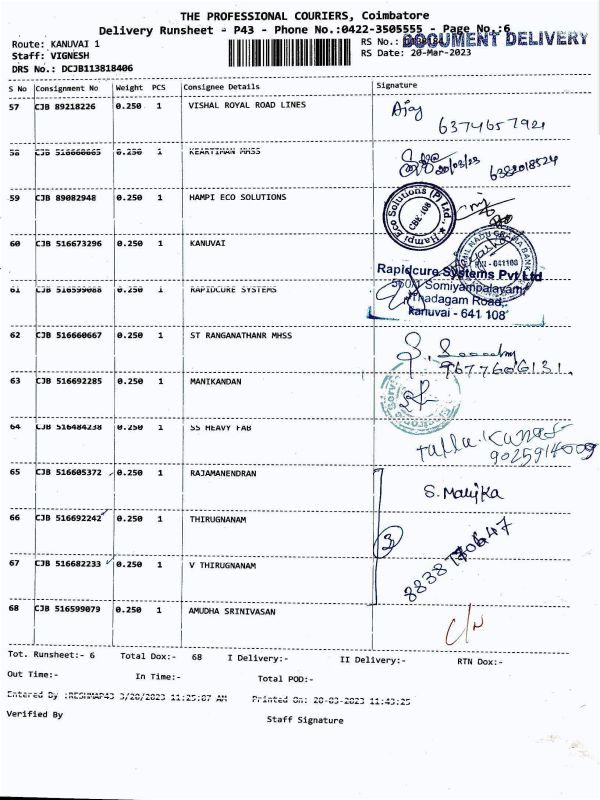 THE PROFESSIONAL COURIERS, Coimbatore
Delivery Runsheet - P43 - Phone No.:0422-3505555 - Page No.:6
Route: KANUVAI 1
RS No.:
DOCUMENT DELIVERY
Staff: VIGNESH
RS Date: 20-Mar-2023
DRS No.: DCJB113818406
S No Consignment No Weight PCS Consignee Details Signature
57 CJB 89218226 0.250 1 VISHAL ROYAL ROAD LINES
Ajay
6374657921
58 CJB 516660665 0.250 1 KEARTIMAN MHSS
20/03/23
6382018524
59 CJB 89082948 0.250 1 HAMPI ECO SOLUTIONS
Hampi Eco Solutions (P) Ltd.,
CBE-108
60 CJB 516673296 0.250 1 KANUVAI
TAMIL NADU GRAMA BANK
641108
61 CJB 516599088 0.250 1 RAPIDCURE SYSTEMS
Rapidcure Systems Pvt Ltd
Somiyampalayam,
Thadagam Road,
kanuvai - 641 108
62 CJB 516660667 0.250 1 ST RANGANATHANR MHSS
9677606131.
63 CJB 516692285 0.250 1 MANIKANDAN
64 CJB 516484238 0.250 1 SS HEAVY FAB
9025914009
65 CJB 516605372 0.250 1 RAJAMANENDRAN
S. Mallika
66 CJB 516692242 0.250 1 THIRUGNANAM
3
67 CJB 516682233 0.250 1 V THIRUGNANAM
68 CJB 516599079 0.250 1 AMUDHA SRINIVASAN
C/N
Tot. Runsheet:- 6 Total Dox:- 68 I Delivery:- II Delivery:- RTN Dox:-
Out Time:- In Time:- Total POD:-
Entered By :RESHMAP43 3/20/2023 11:25:07 AM Printed On: 20-03-2023 11:43:25
Verified By Staff Signature